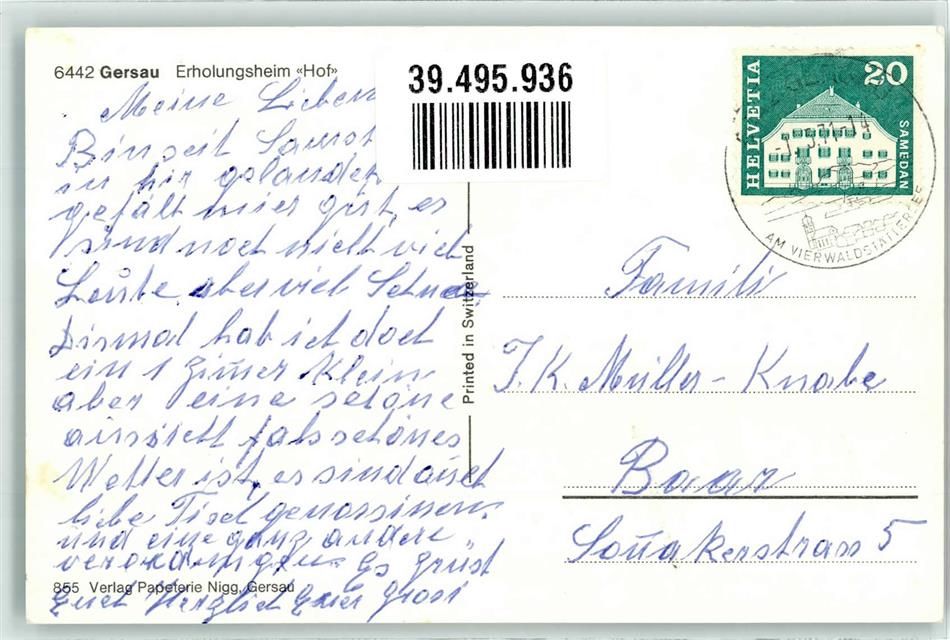 6442 Gersau Erholungsheim «Hof»
39.495.936
HELVETIA
20
SAMEDAN
AM VIERWALDSTÄTTERSEE
Meine Lieben
Bin seit Samst
in hir gelandet
gefält mier gut, es
sind noch nicht viel
Leute, aber viel Schne
Dismal hab ich doch
ein 1 Zimer klein
aber eine schöne
aussicht fals schönes
Wetter ist, es sind auch
liebe Tischgenossinnen
und eine ganz andere
Es grüst
Euch Herzlich Euer Grosi
Printed in Switzerland
855 Verlag Papeterie Nigg, Gersau
Famili
J. K. Müller - Knabe
Baar
Sonakerstrass 5